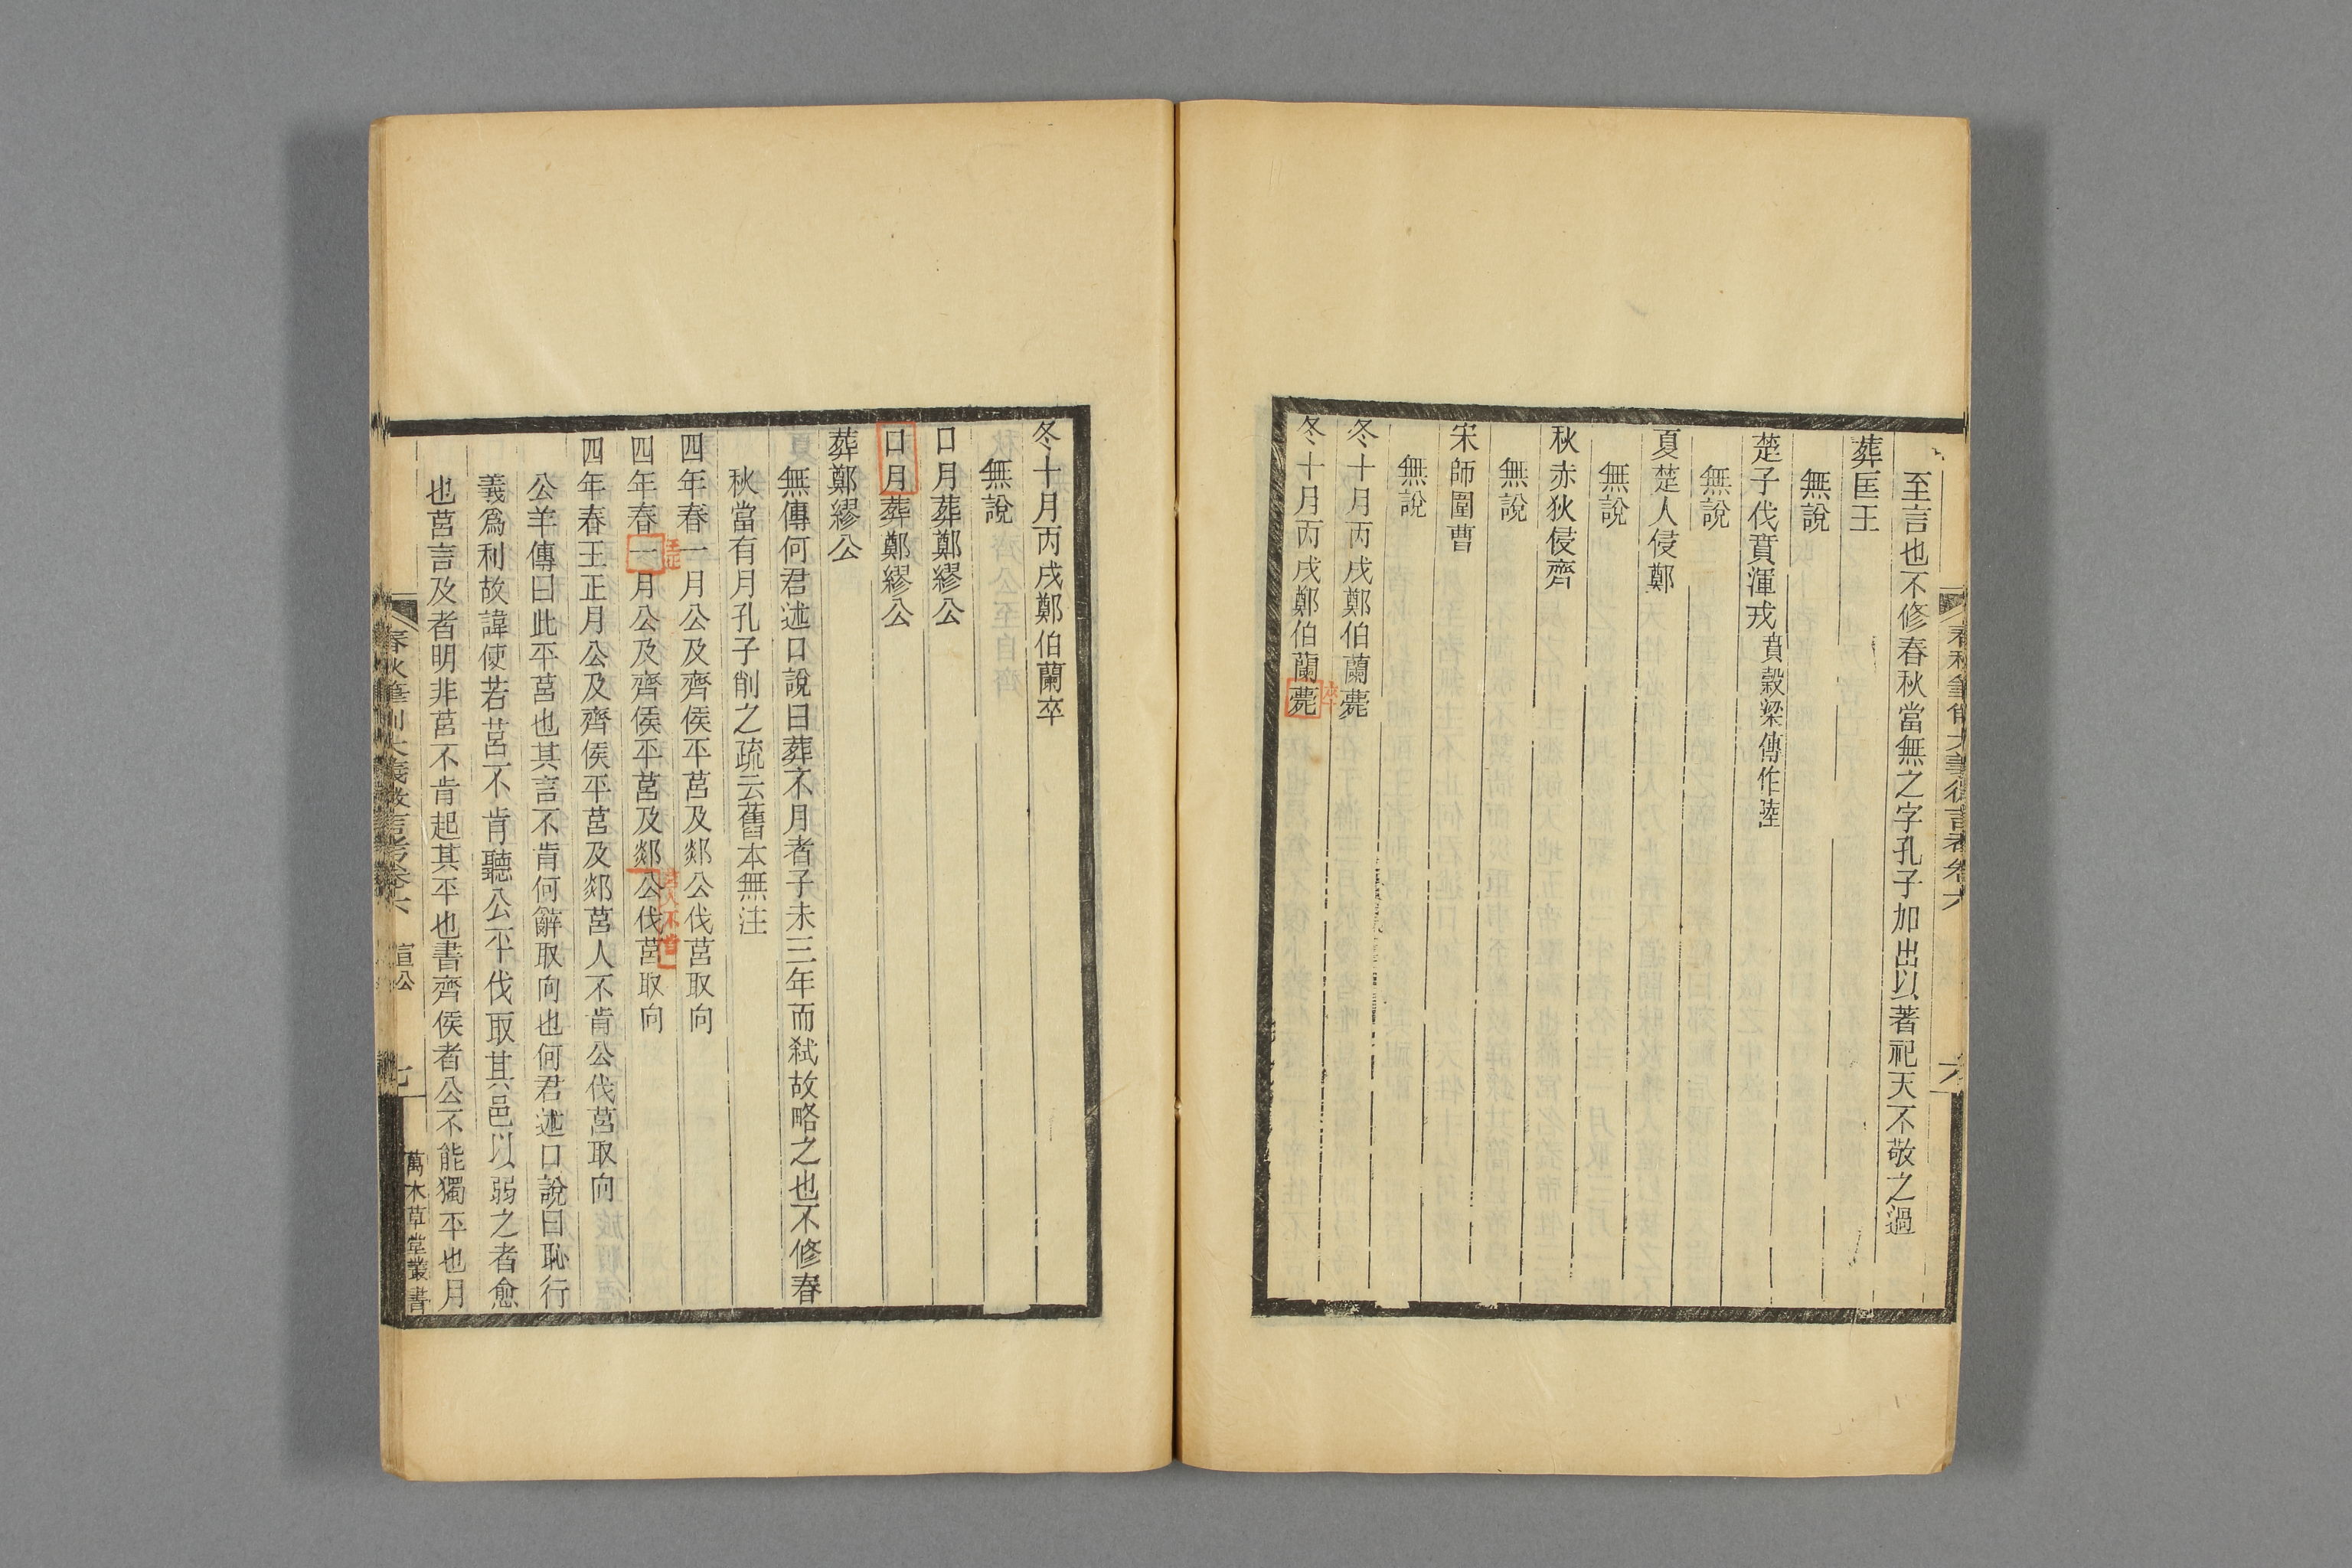 春秋筆削大義微言考卷六
六
至言也不修春秋當無之字孔子加出以著祀天不敬之過
葬匡王
無說
楚子伐賁渾戎賁穀梁傳作陸
無說
夏楚人侵鄭
無說
秋赤狄侵齊
無說
宋師圍曹
無說
冬十月丙戌鄭伯蘭薨
卒
冬十月丙戌鄭伯蘭薨
冬十月丙戌鄭伯蘭卒
無說
口月葬鄭繆公
口月葬鄭繆公
葬鄭繆公
無傳何君述口說曰葬不月者子未三年而弒故略之也不修春
秋當有月孔子削之疏云舊本無注
四年春一月公及齊侯平莒及郯公伐莒取向
王正
莒人不肯
四年春一月公及齊侯平莒及郯公伐莒取向
四年春王正月公及齊侯平莒及郯莒人不肯公伐莒取向
公羊傳曰此平莒也其言不肯何辭取向也何君述口說曰恥行
義爲利故諱使若莒不肯聽公平伐取其邑以弱之者愈
也莒言及者明非莒不肯起其平也書齊侯者公不能獨平也月
春秋筆削大義微言考卷六 宣公
七
萬木草堂叢書